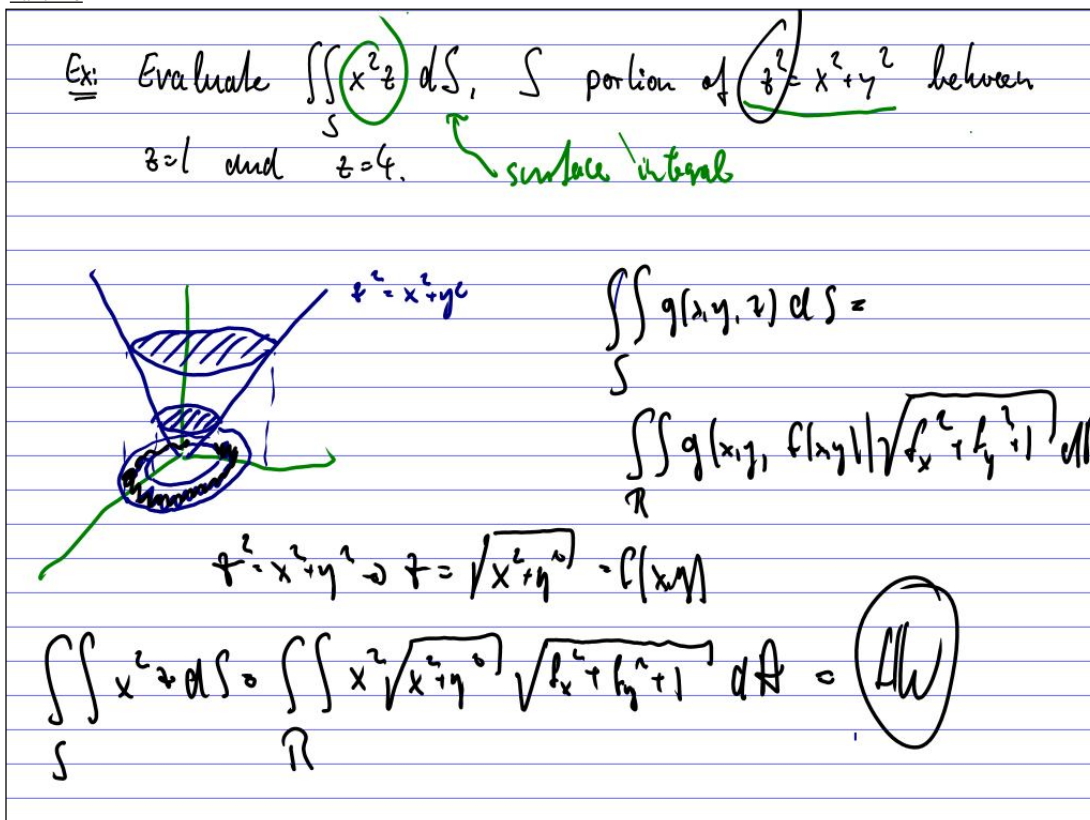 Ex: Evaluate ∬_S x²z dS, S portion of z² = x² + y² between
z=1 and z=4.
surface integral
z² = x² + y²
∬_S g(x, y, z) dS =
∬_R g(x, y, f(x,y)) √(f_x² + f_y² + 1) dA
z² = x² + y² → z = √(x² + y²) = f(x,y)
∬_S x²z dS = ∬_R x² √(x² + y²) √(f_x² + f_y² + 1) dA = HW